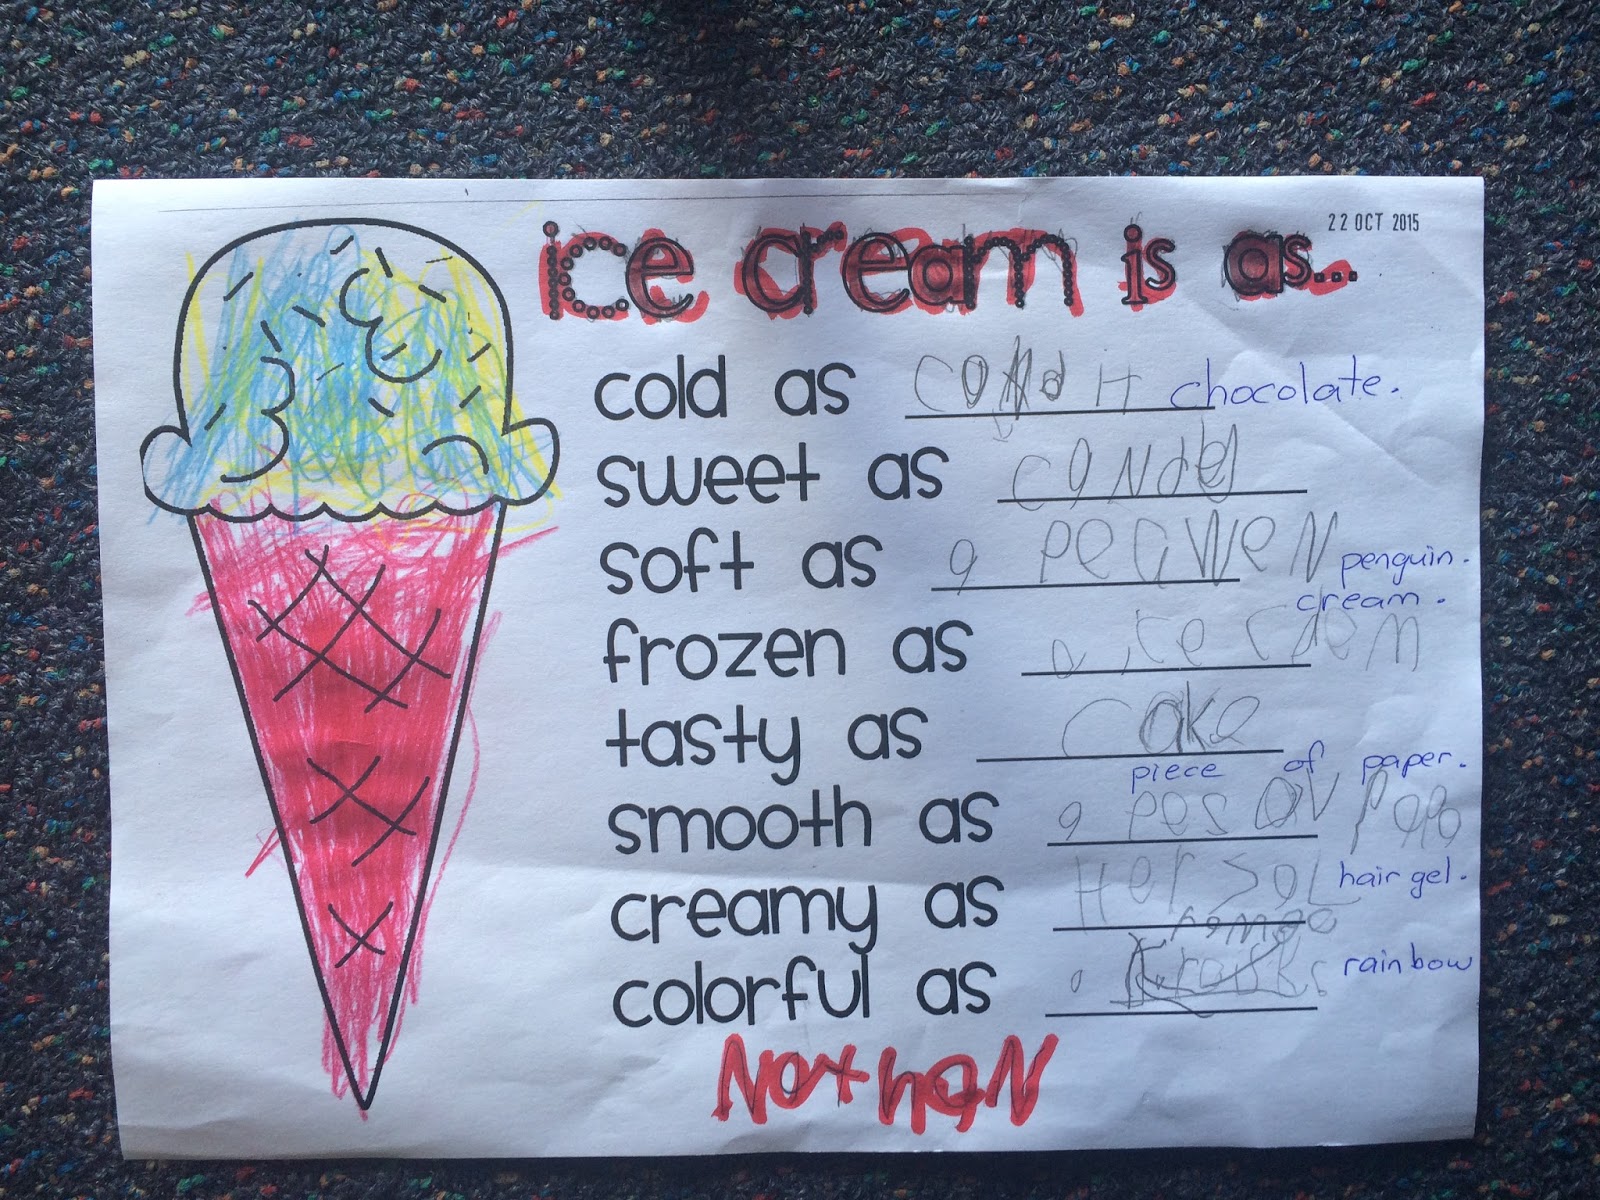 22 OCT 2015
ice cream is as...
cold as chocolate.
sweet as candy
soft as a PeGWeN penguin.
cream.
frozen as a ice craem
tasty as cake
piece of paper.
smooth as a Pes OV PaPa
creamy as Her Jol hair gel.
colorful as a rainbow
NathaN